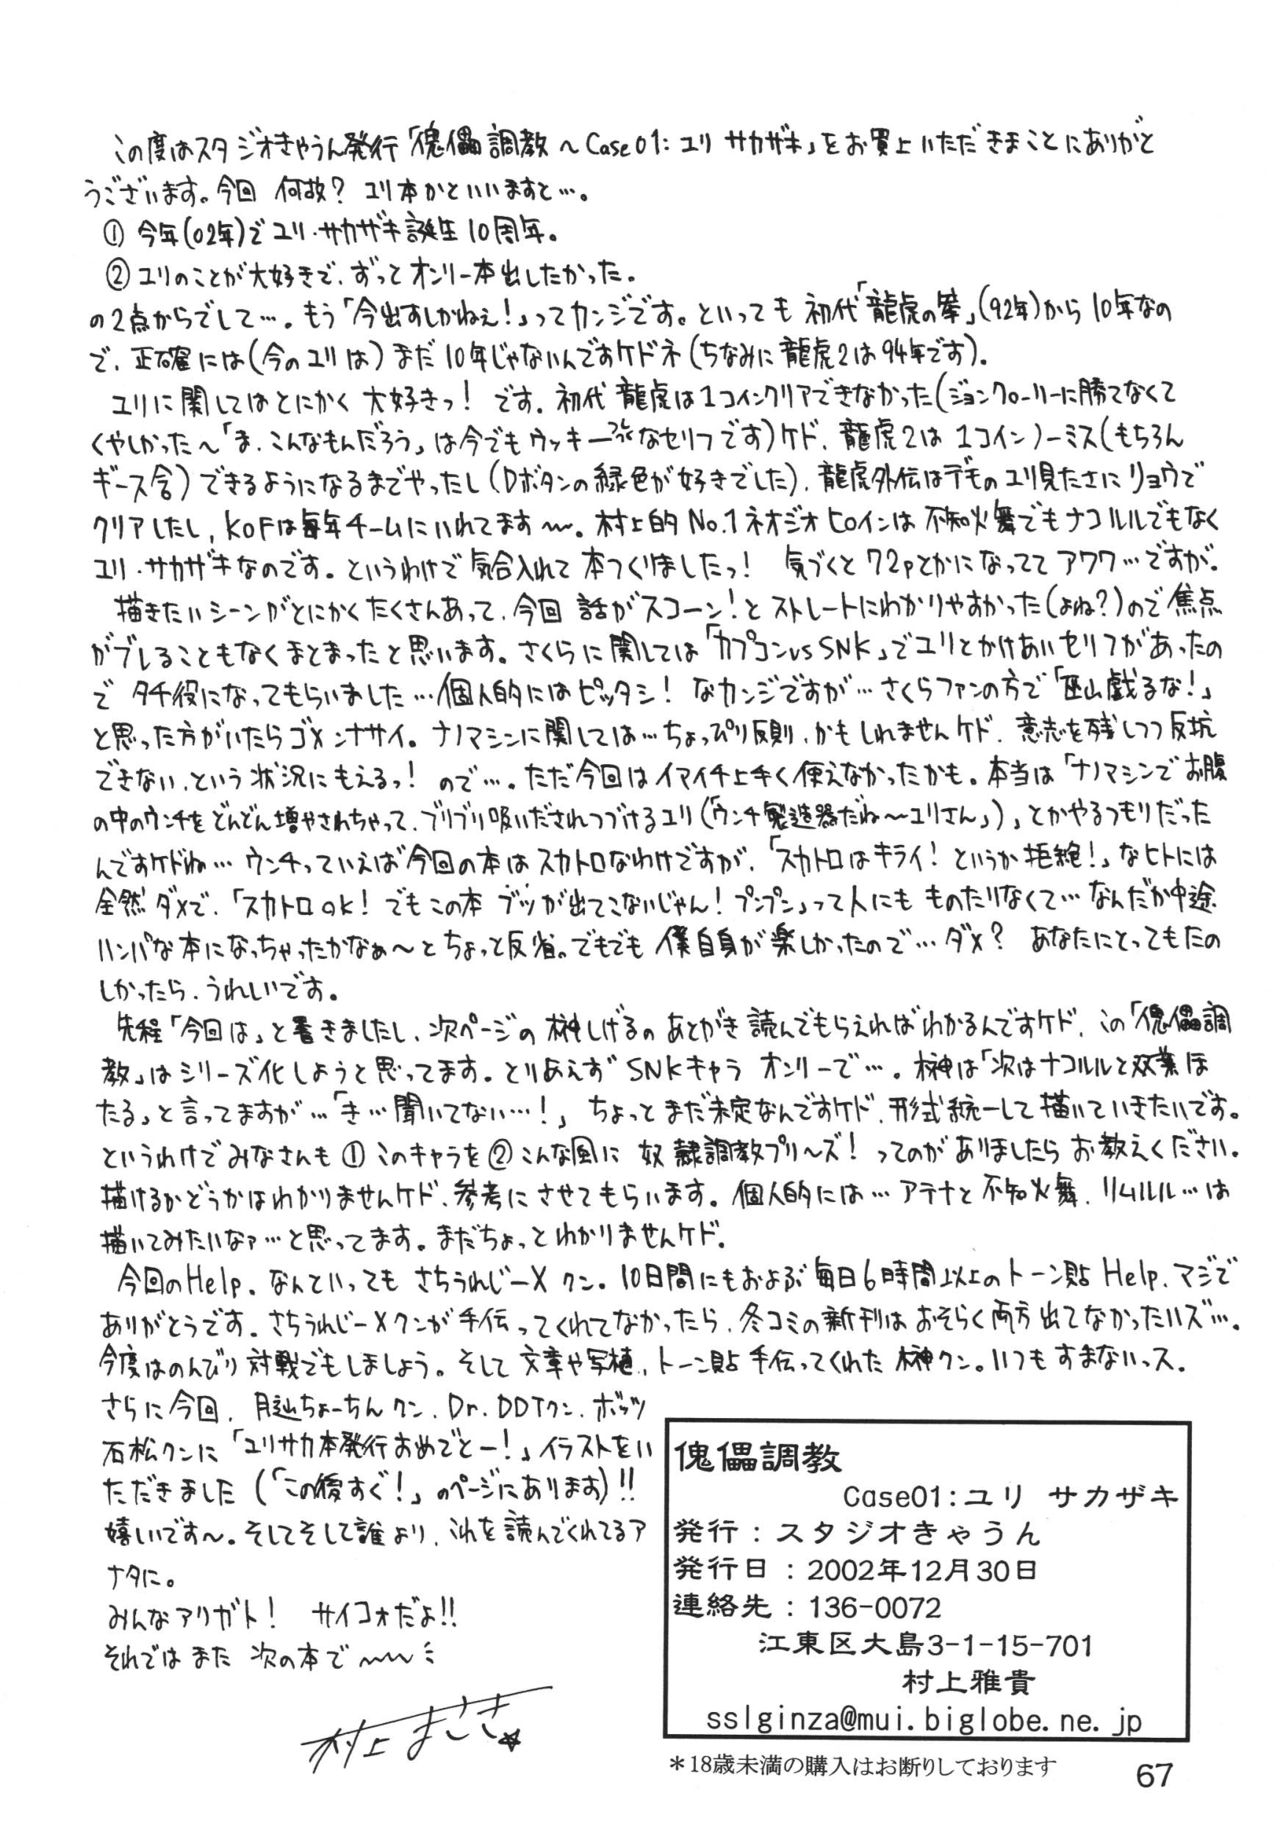 この度はスタジオきゃうん発行「傀儡調教～Case01:ユリ サカザキ」をお買上いただきまことにありがと
うございます。今回 何故? ユリ本かといいますと…。
① 今年(02年)でユリ・サカザキ誕生10周年。
② ユリのことが大好きで、ずっとオンリー本出したかった。
の2点からでして…。もう「今出すしかねぇ!」ってカンジです。といっても 初代「龍虎の拳」(92年)から10年なの
で、正確には(今のユリは)まだ10年じゃないんですケドネ(ちなみに龍虎2は94年です)。
ユリに関してはとにかく 大好きっ! です。初代 龍虎は1コインクリアできなかった(ジョンクローリーに勝てなくて
くやしかった～「ま、こんなもんだろう」は今でもウッキーなセリフです)ケド、龍虎2は 1コインノーミス(もちろん
ギース含)できるようになるまでやったし(Dボタンの緑色が好きでした)、龍虎外伝はデモのユリ見たさにリョウで
クリアしたし、KOFは毎年チームにいれてます～。村上的No.1ネオジオヒロインは不知火舞でもナコルルでもなく
ユリ・サカザキなのです。というわけで気合入れて本つくりましたっ! 気づくと72pとかになっててアワワ…ですが。
描きたいシーンがとにかくたくさんあって、今回 話がスコーン!とストレートにわかりやすかった(よね?)ので焦点
がブレることもなくまとまったと思います。さくらに関しては「カプコンvsSNK」でユリとかけあいセリフがあったの
で タチ役になってもらいました…個人的にはピッタシ! なカンジですが…さくらファンの方で「巫山戯るな!」
と思った方がいたらゴメンナサイ。ナノマシンに関しては…ちょっぴり反則、かもしれませんケド、意志を残しつつ反抗
できない、という状況にもえるっ! ので…。ただ今回はイマイチ上手く使えなかったかも。本当は「ナノマシンでお腹
の中のウンチをどんどん増やされちゃって、ブリブリ吸いだされつづけるユリ(「ウンチ製造器だね～ユリさん」)」とかやるつもりだった
んですケドね…ウンチっていえば今回の本はスカトロなわけですが、「スカトロはキライ! というか拒絶!」なヒトには
全然ダメで、「スカトロok! でもこの本 ブツが出てこないじゃん! プンプン」って人にも ものたりなくて…なんだか中途
ハンパな本になっちゃったかなぁ～とちょっと反省。でもでも 僕自身が楽しかったので…ダメ? あなたにとってもたの
しかったら、うれしいです。
先程「今回は」と書きましたし、次ページの榊しげるのあとがき読んでもらえればわかるんですケド、この「傀儡調
教」はシリーズ化しようと思ってます。とりあえずSNKキャラ オンリーで…。榊は「次はナコルルと双葉ほ
たる」と言ってますが…「き…聞いてない…!」 ちょっとまだ未定なんですケド、形式統一して描いていきたいです。
というわけでみなさんも ①このキャラを②こんな風に 奴隷調教プリ～ズ! ってのがありましたら お教えください。
描けるかどうかはわかりませんケド、参考にさせてもらいます。個人的には…アテナと不知火舞、リムルル…は
描いてみたいなァ…と思ってます。まだちょっとわかりませんケド。
今回のHelp。なんといっても さちうれじーXクン。10日間にもおよぶ毎日6時間以上のトーン貼Help、マジで
ありがとうです。さちうれじーXクンが手伝ってくれてなかったら、冬コミの新刊はおそらく両方出てなかったハズ…。
今度はのんびり対戦でもしましょう。そして 文章や写植、トーン貼手伝ってくれた 榊クン。いつもすまないっス。
さらに今回、月辿ちょーちんクン、Dr.DDTクン、ボッツ
石松クンに「ユリサカ本発行おめでとー!」イラストをい
ただきました(「この後すぐ!」のページにあります)!!
嬉しいです～。そしてそして誰より、これを読んでくれてるア
ナタに。
みんなアリガト! サイコォだよ!!
それではまた 次の本で～
村上まさき
傀儡調教
Case01:ユリ サカザキ
発行：スタジオきゃうん
発行日：2002年12月30日
連絡先：136-0072
江東区大島3-1-15-701
村上雅貴
sslginza@mui.biglobe.ne.jp
＊18歳未満の購入はお断りしております
67